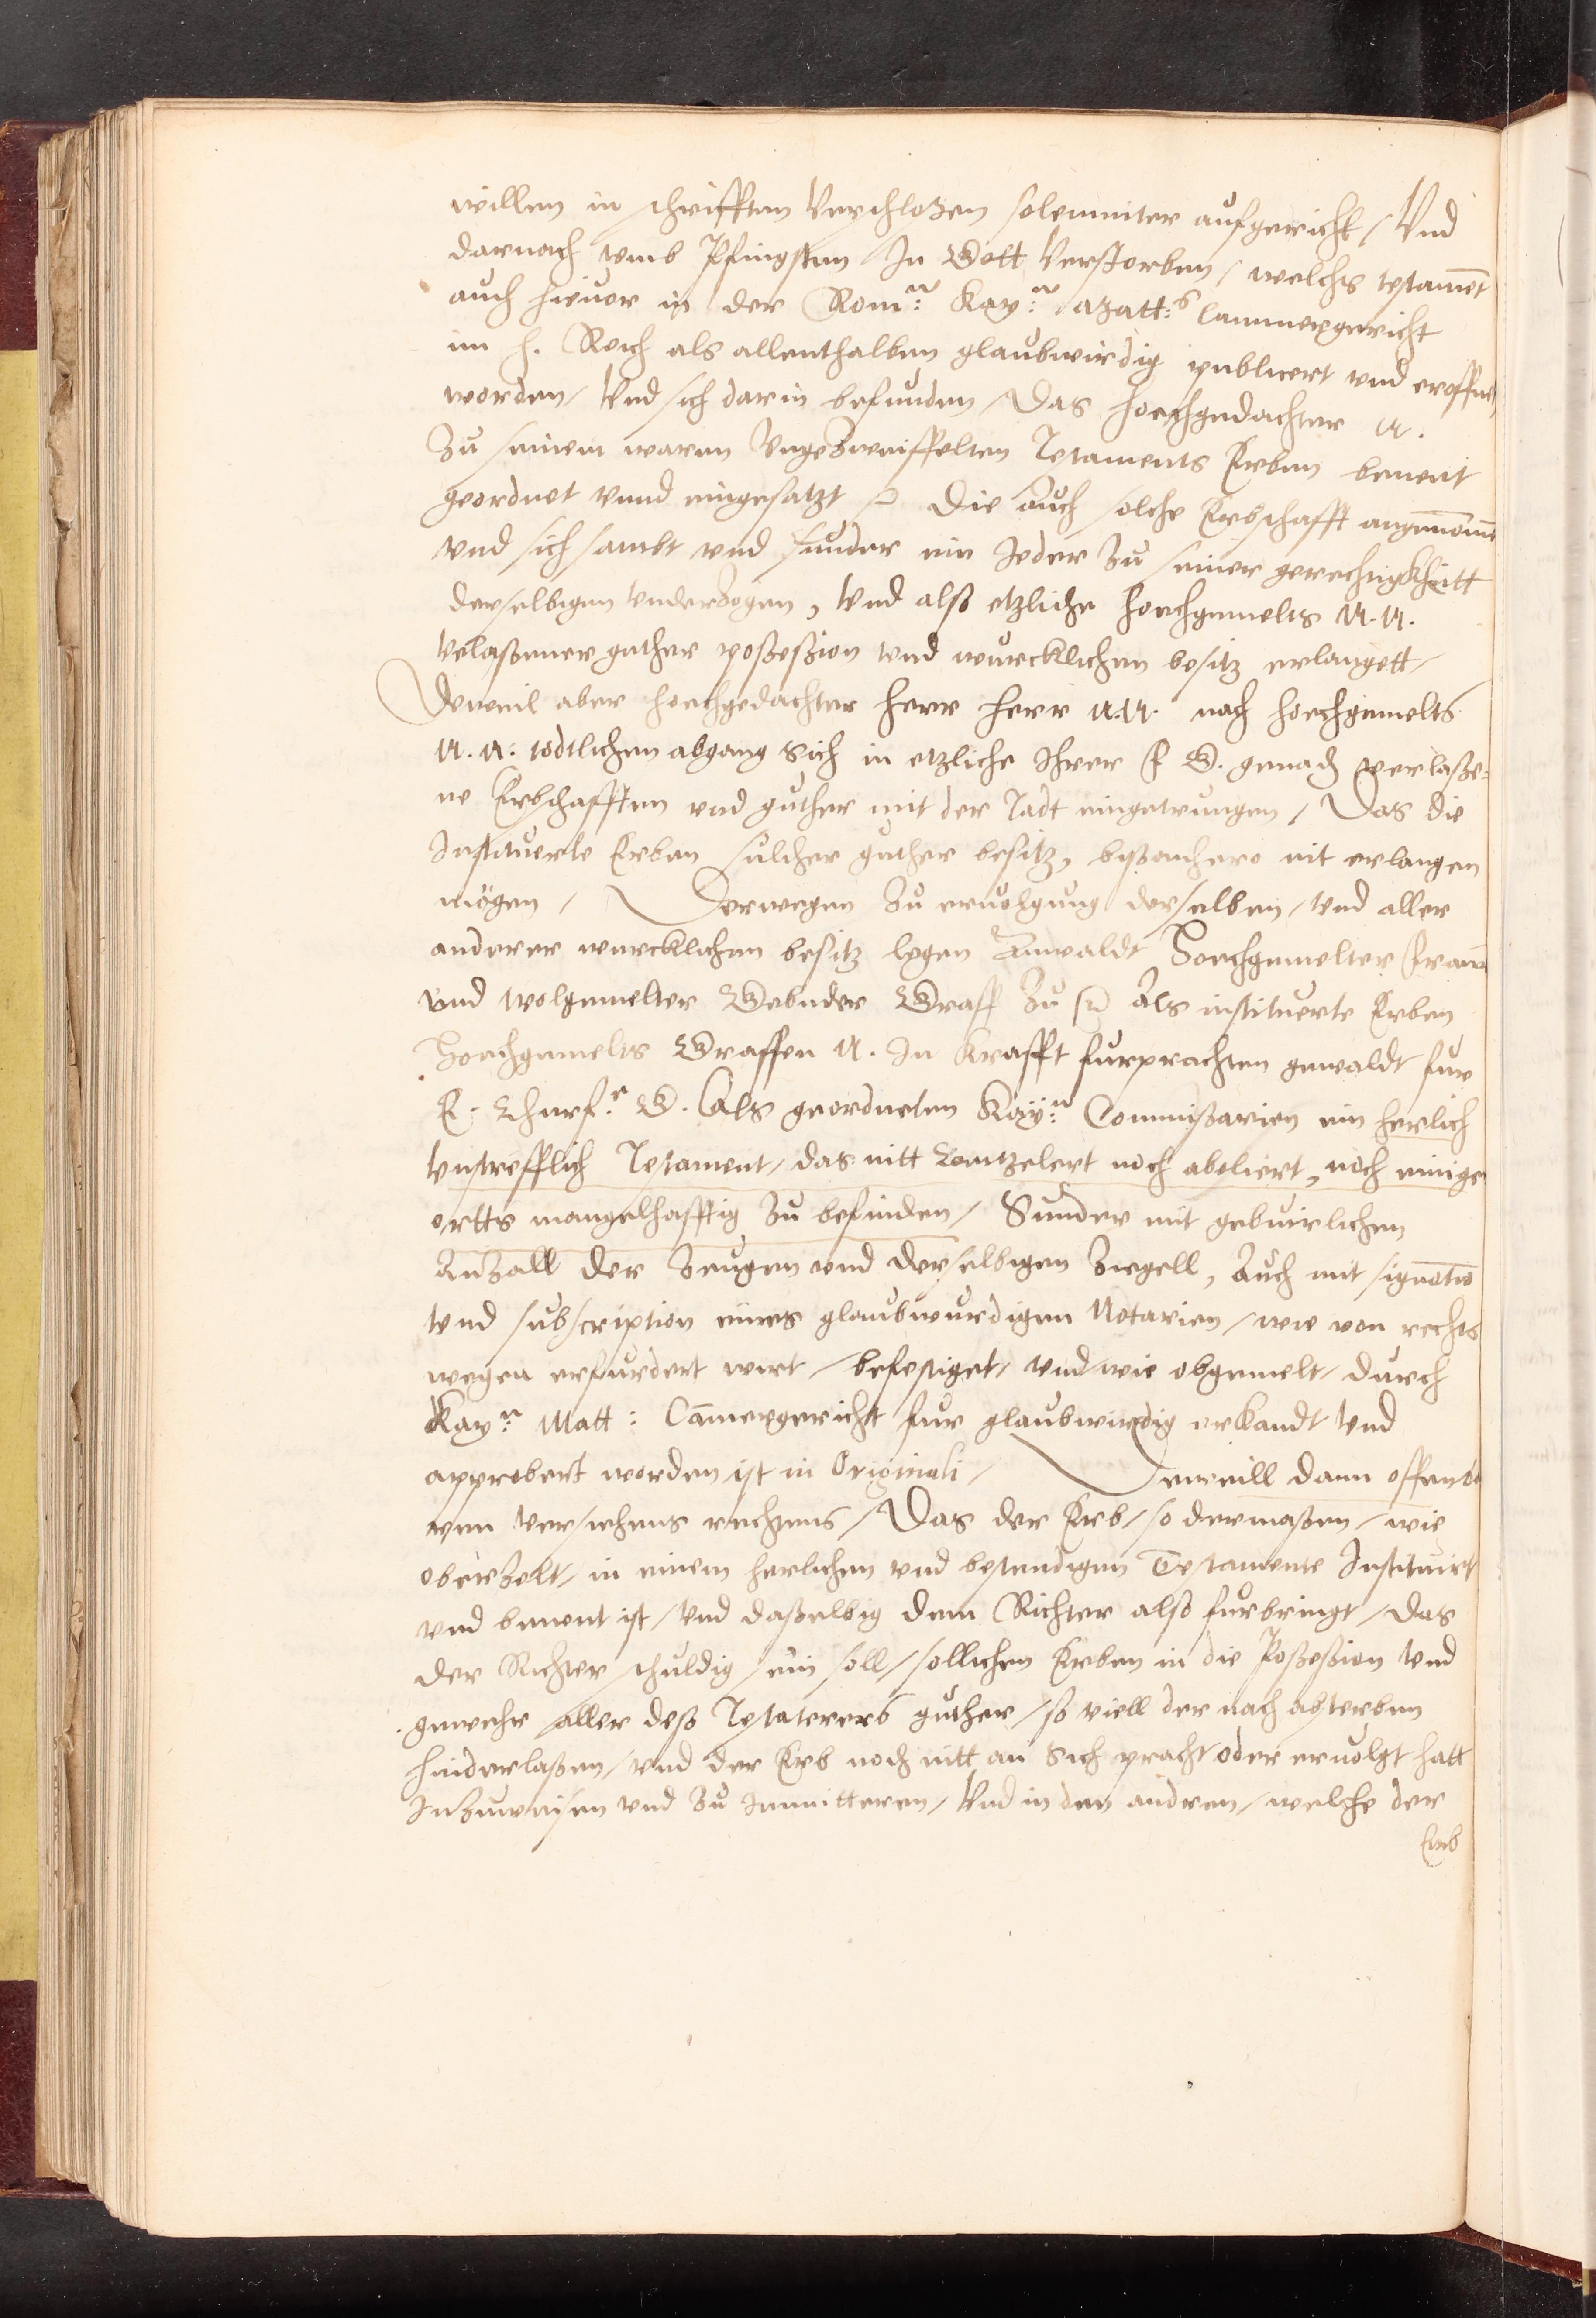 willen in schrifften Verschloßen solemniter aufgericht / Vnd
darnach vmb Pfingsten In Gott Verstorben / welchs testament
auch hieuor in der Rom:r Kay:r Matt:s Cammergericht
im h. Reich als allenthalben glaubwirdig publicert vnd eroffnet
worden / Vnd sich darin befunden / Das hochgedachter N.
Zu seinem waren Vngezweiffelten Testaments Erben benent
geordnet vnnd eingesatzt / Die auch solche Erbschafft angenomen
vnd sich sambt vnd sunder ein Jeder Zu seiner gerechtigkheitt
derselbigen Vnderzogen, Vnd also etzliche hochgemelts N. N.
Velaßener guther poßeßion vnd wurcklichen besitz erlangett /
Deweil aber hochgedachter Herr Herr N. N. nach hochgemelts
N. N. todtlichen abgang Sich in etzliche Ihrer F G. gemach verlaße-
ne Erbschafften vnd guther mit der Tadt eingetrungen / Das die
Instituerte Erben sulcher guther besitz, bißanhero nit erlangen
mögen / Derwegen Zu eruolgung derselben / Vnd aller
anderer wurcklichen besitz legen Anwaldt Hochgemelter
vnd wolgemelter Gebruder Graff Zu Als instituerte Erben
Hochgemelts Graffen N. In Krafft furprachten gewaldt fur
E. Churf:r G. Als geordneten Kay:n Commißarien ein herlich
Vntrefflich Testament / das nitt Cantzelert noch aboliert, noch einiges
ortts mangelhafftig Zu befinden / Sunder mit geburlichen
Anzall der Zeugen vnd derselbigen Ziegell, Auch mit signation
Vnd subscription eines glaubwurdigen Notarien / wie von rechts
wegen erfurdert wirt / befestiget / vnd wie obgemelt / durch
Kay:r Matt: Cammergericht fur glaubwirdig erkandt Vnd
approbert worden ist in Originali / Deweill dann offenbar
vnd versehens rechtens / Das der Erb / so dermaßen / wie
oberzelt / in einem herlichen vnd bestendigen Testamente Instituirt
vnd benent ist / Vnd daßelbig dem Richter also furbringt / das
der Richter schuldig sein soll / sollichen Erben in die Poßeßion Vnd
gewehr aller deß Testaterers guther / so viell der nach absterben
hinderlaßen / vnd der Erb noch nitt an Sich pracht oder eruolgt hatt
Inzuweisen vnd Zu Immitteren / Vnd in den andren / welche der
Erb